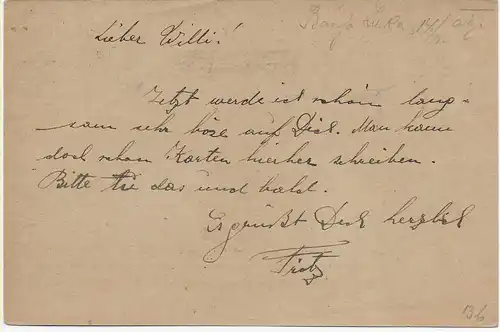 Lieber Willi!
Jetzt werde ich schon lang-
sam sehr böse auf Dich. Man kann
doch schon Karten hierher schreiben.
Bitte tue das und bald.
Es grüßt Dich herzlich
Fritz
B6